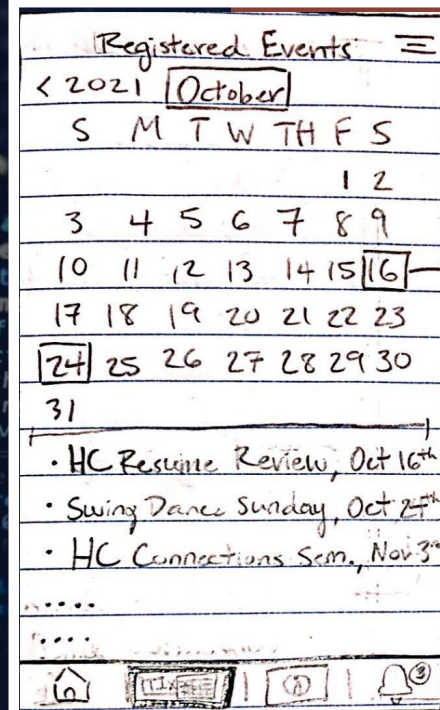 Registered Events
< 2021 October
S M T W TH F S
1 2
3 4 5 6 7 8 9
10 11 12 13 14 15 16
17 18 19 20 21 22 23
24 25 26 27 28 29 30
31
• HC Resume Review, Oct 16th
• Swing Dance Sunday, Oct 24th
• HC Connections Sem., Nov 3rd
.....
....
3